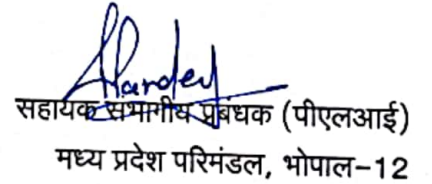 सहायक संभागीय प्रबंधक (पीएलआई)
मध्य प्रदेश परिमंडल, भोपाल-12